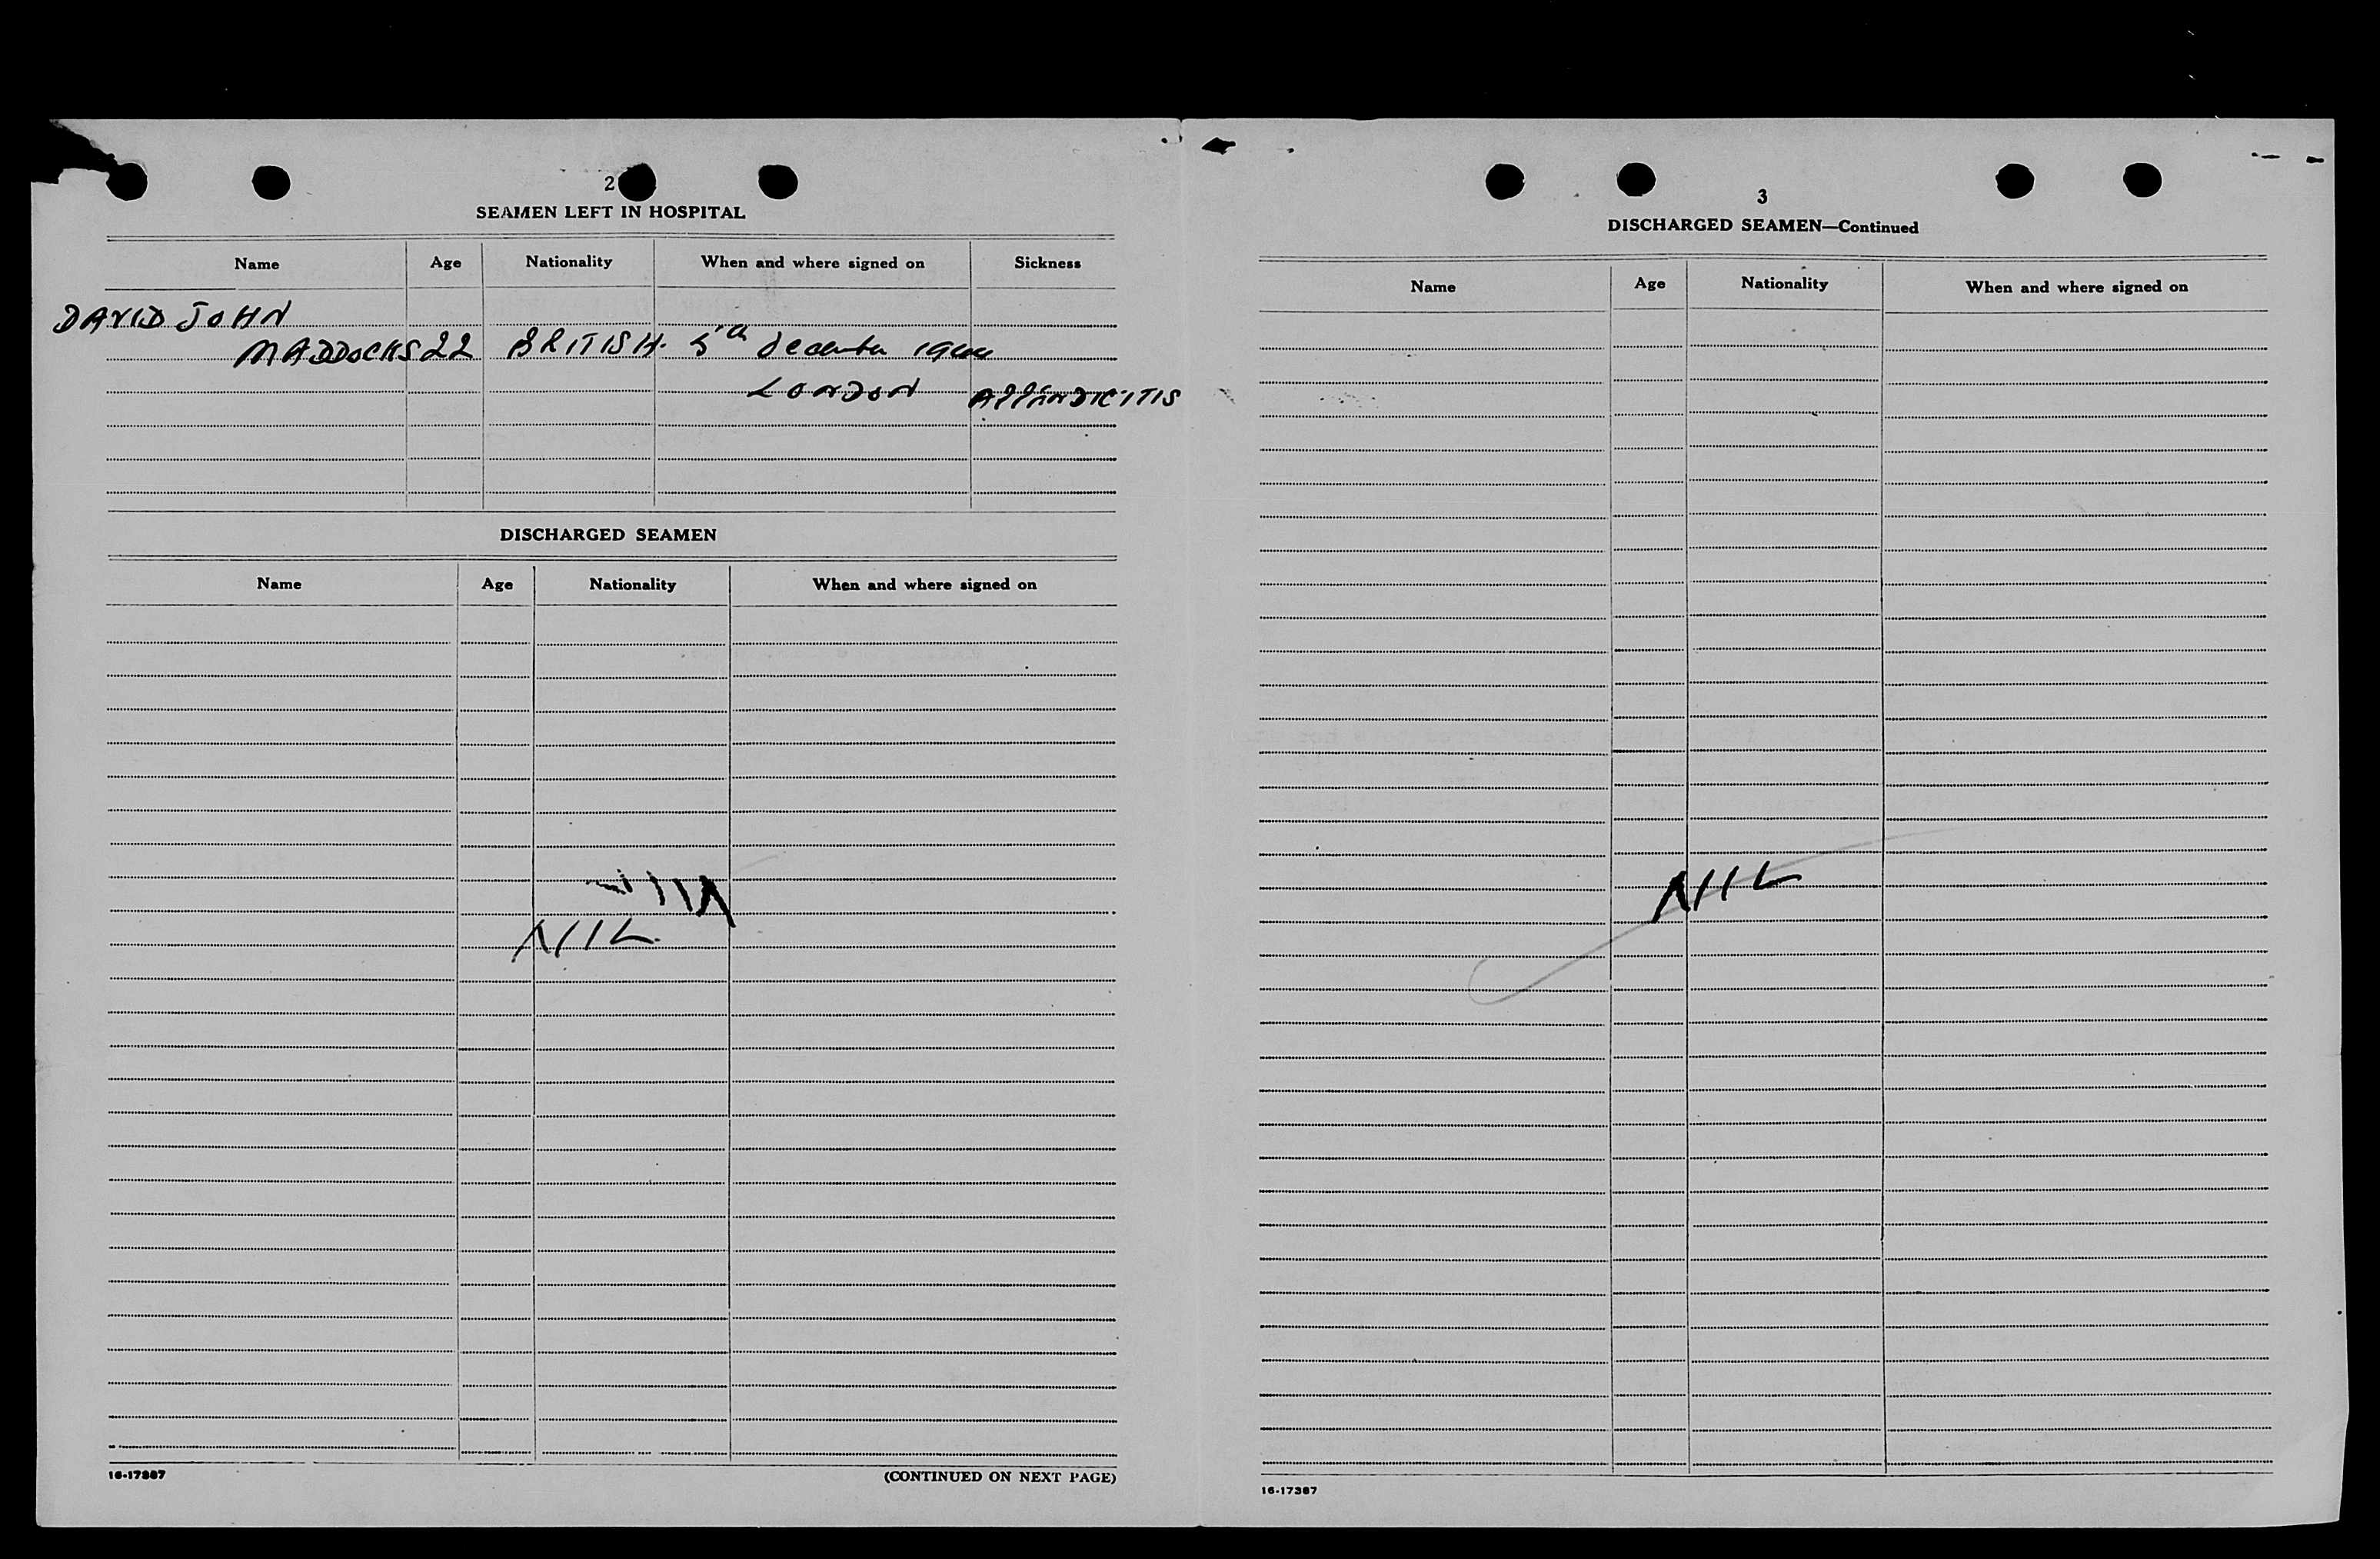 2
SEAMEN LEFT IN HOSPITAL
Name Age Nationality When and where signed on Sickness
DAVID JOHN
MADDOCKS 22 BRITISH. 5th December 1944
LONDON APPENDICITIS
DISCHARGED SEAMEN
Name Age Nationality When and where signed on
NIL.
16-17387
(CONTINUED ON NEXT PAGE)
3
DISCHARGED SEAMEN—Continued
Name Age Nationality When and where signed on
NIL
16-17387